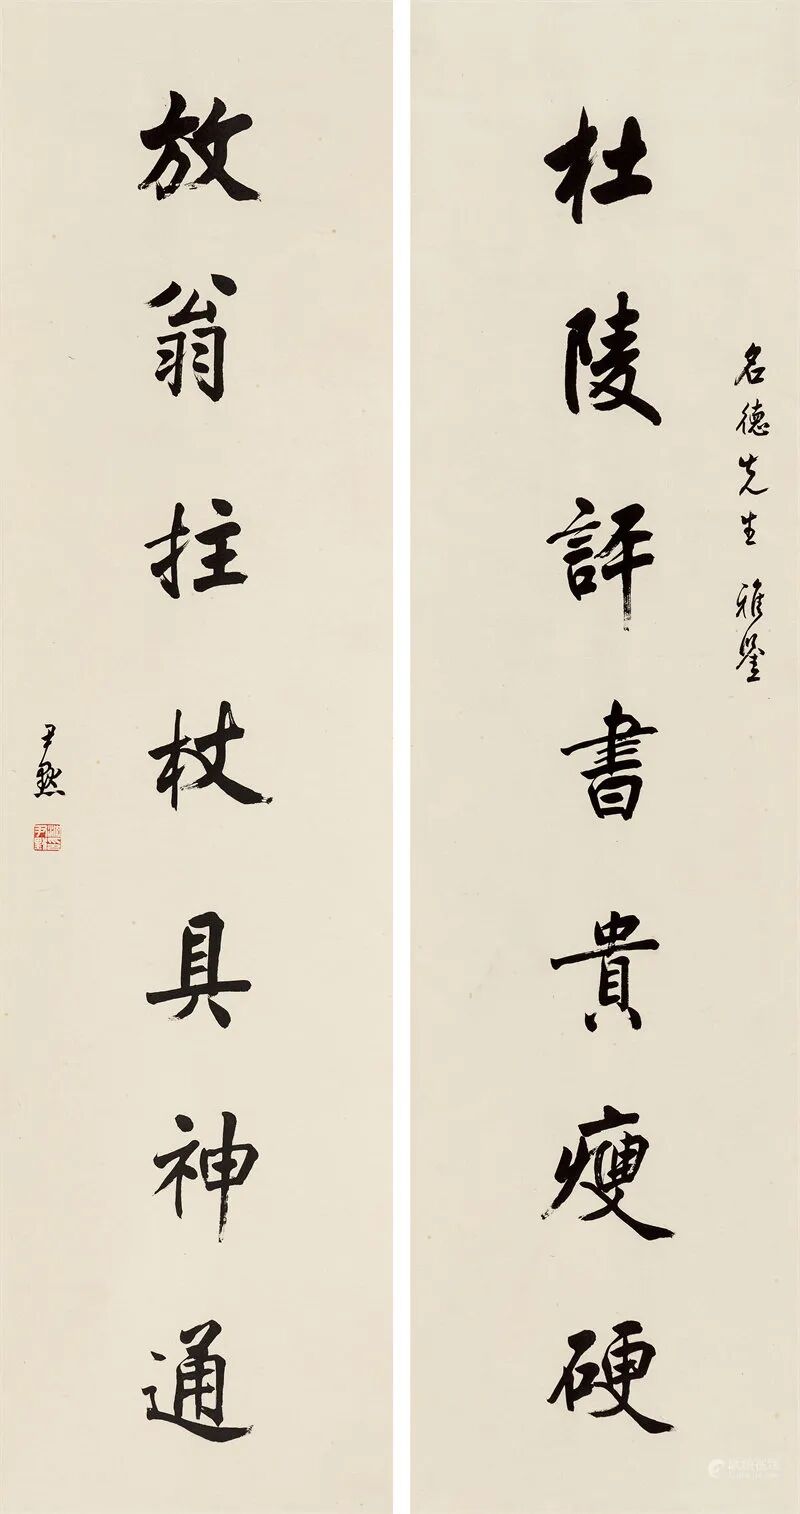 名德先生雅鑒
杜陵評書貴瘦硬
放翁拄杖具神通
尹默